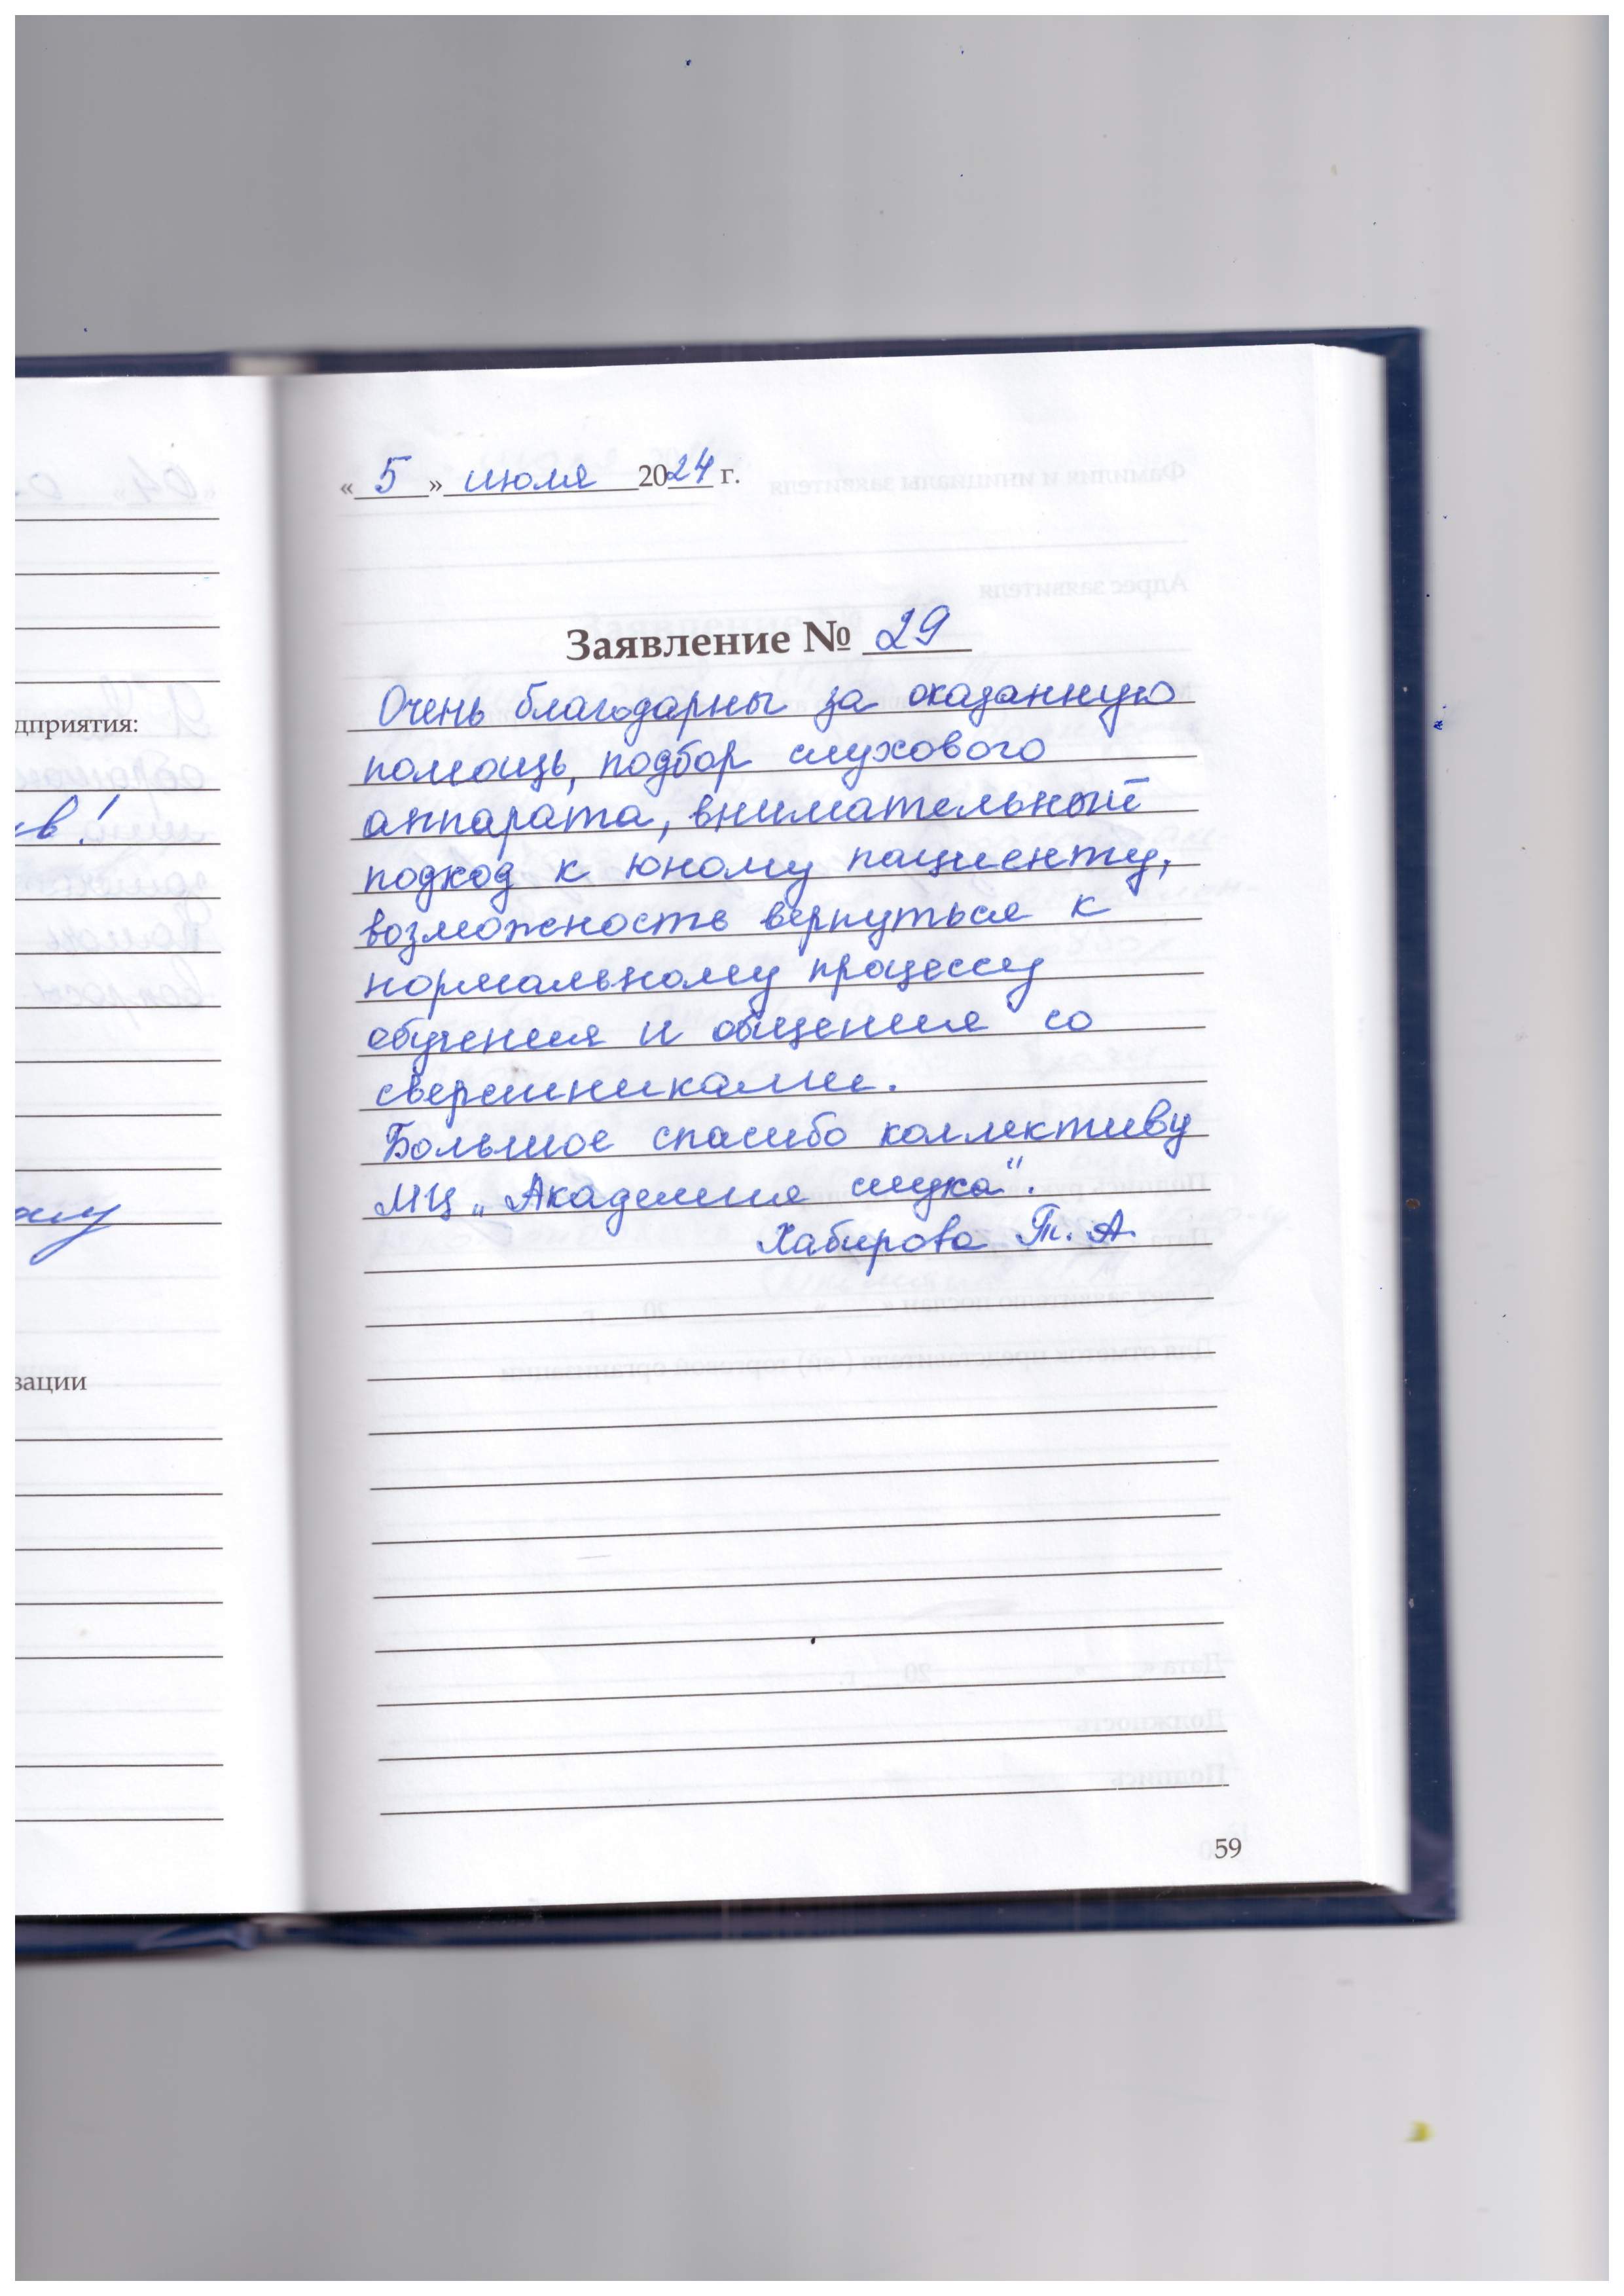 « 5 » июля 2024 г.
Заявление № 29
Очень благодарны за оказанную
помощь, подбор слухового
аппарата, внимательный
подход к юному пациенту,
возможность вернуться к
нормальному процессу
обучения и общения со
сверстниками.
Большое спасибо коллективу
МЦ „Академия слуха“.
Хабирова Т. А.
59
дприятия:
в!
зации